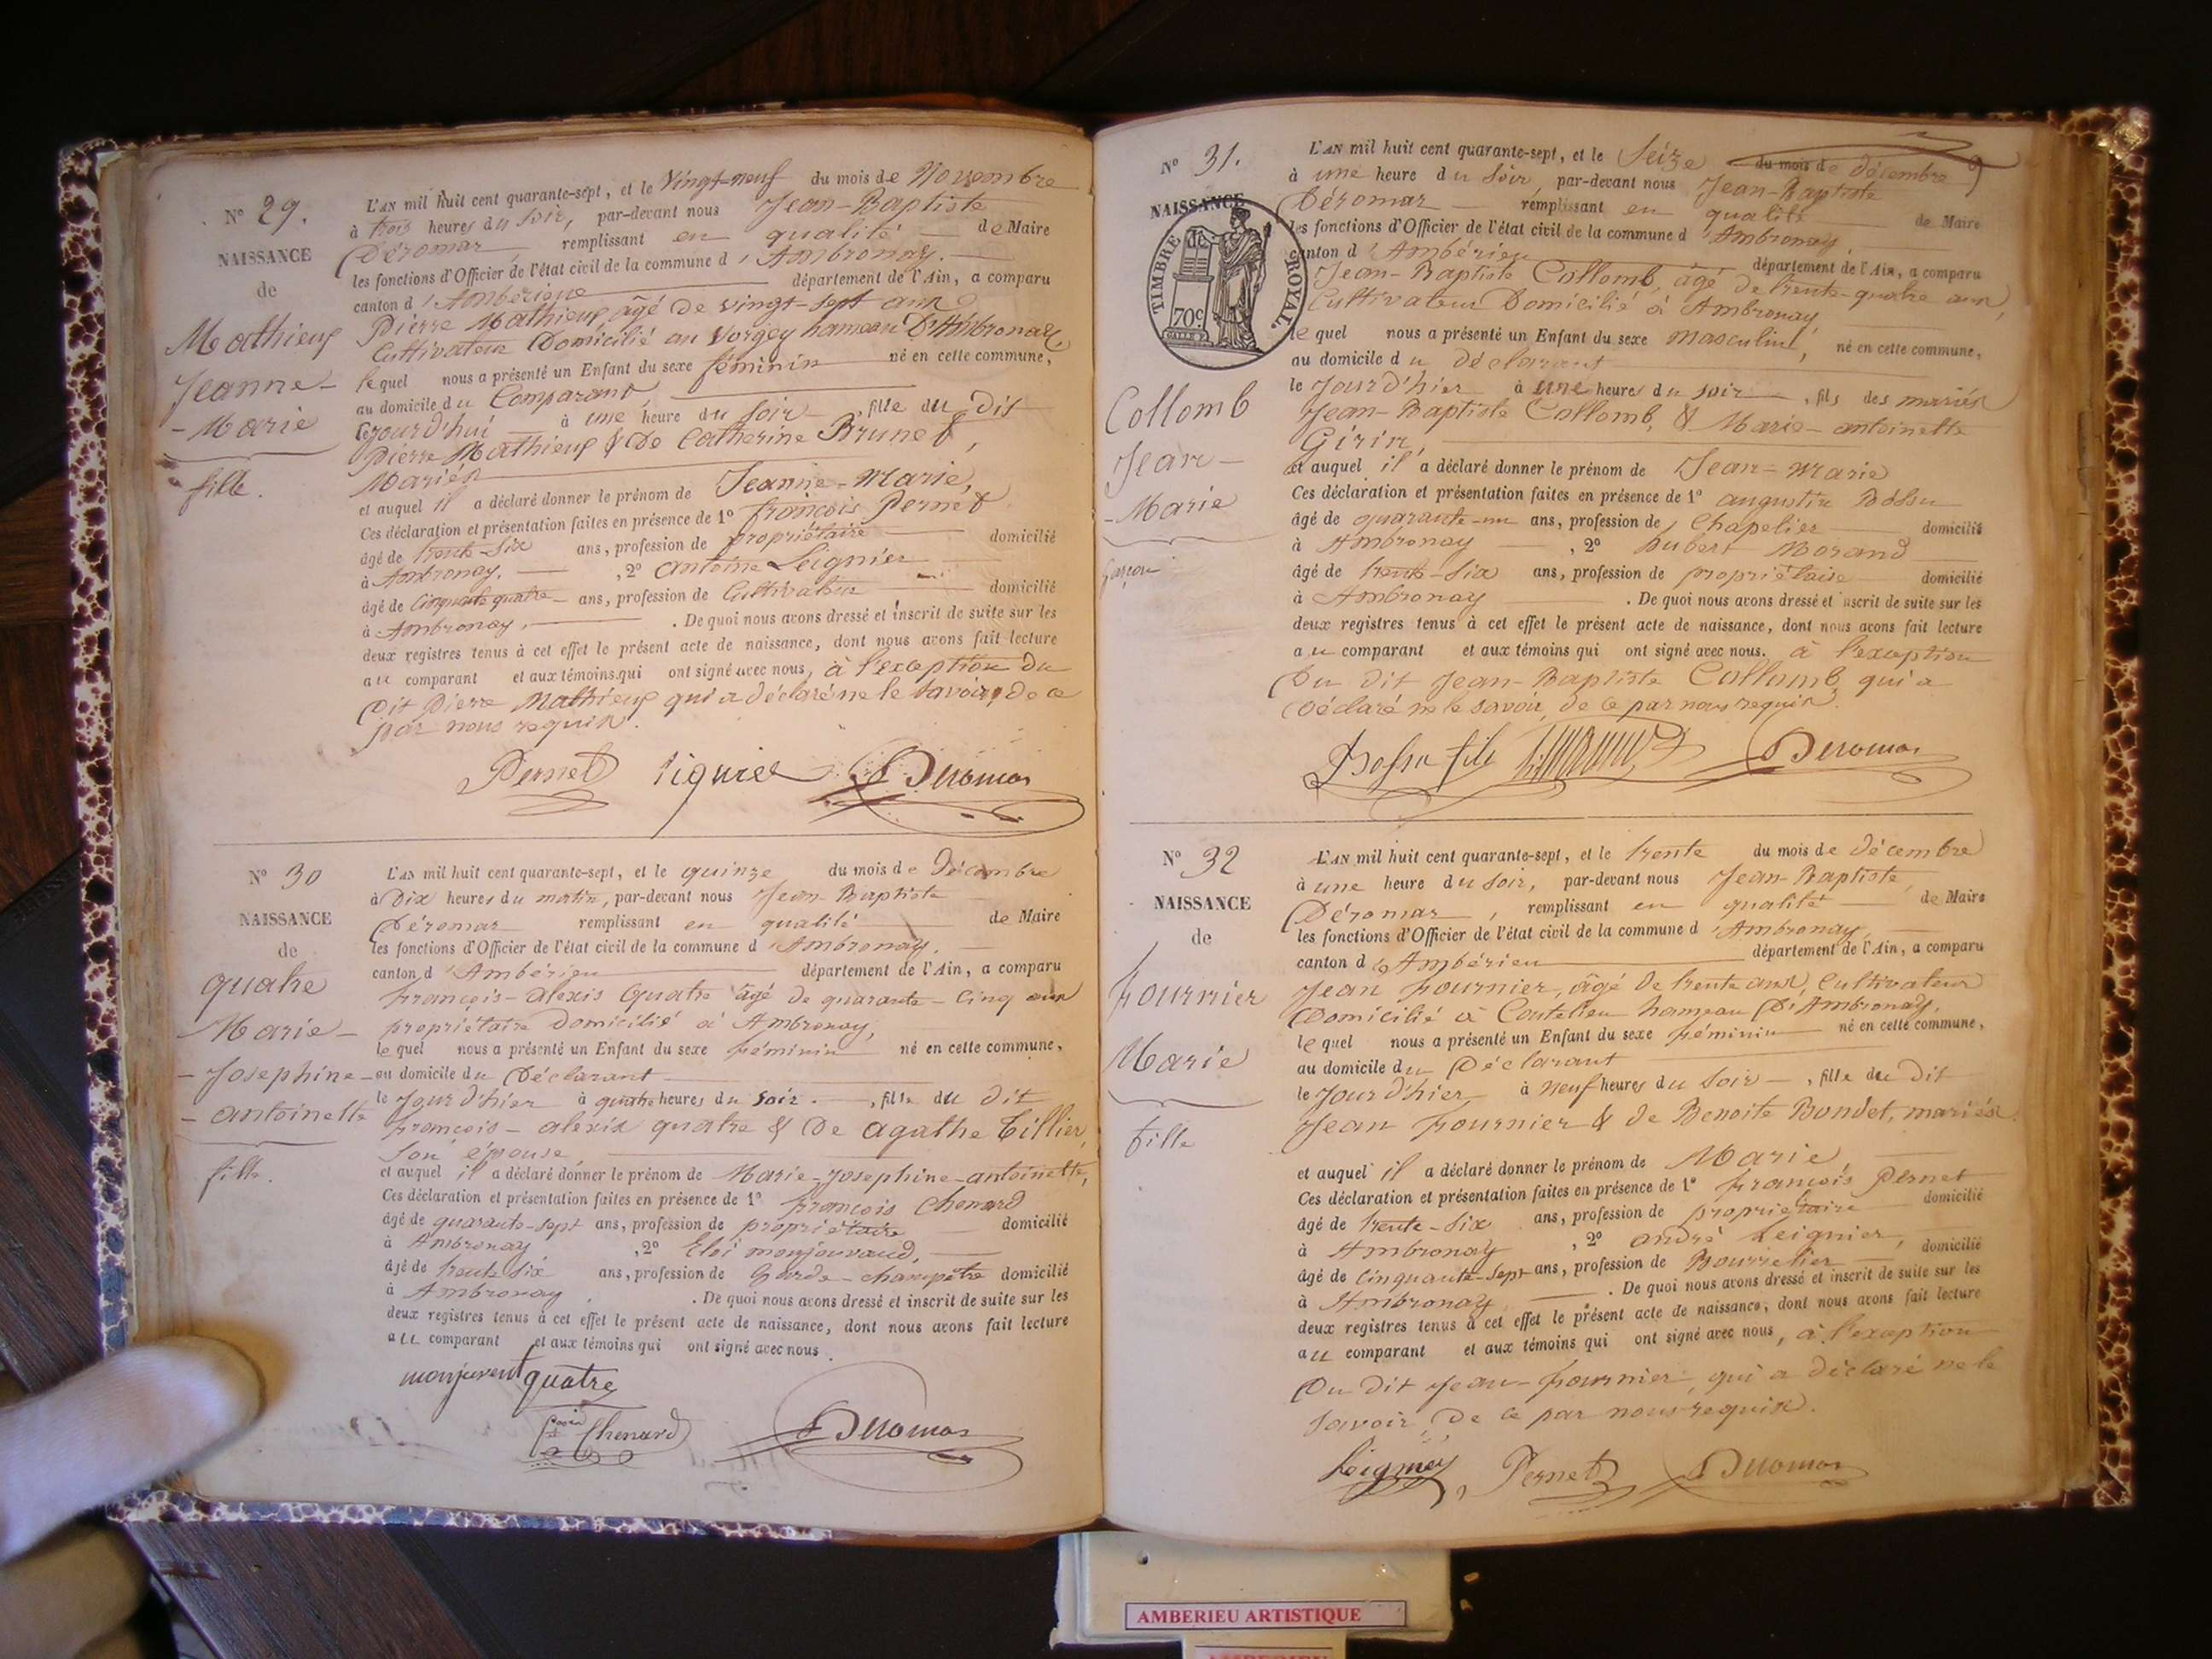 N° 29.
NAISSANCE
de
Mathieu
Jeanne-
-Marie
fille.
L'AN mil huit cent quarante-sept, et le Vingt-neuf du mois de Novembre
à trois heures du soir, par-devant nous Jean-Baptiste
Déromas, remplissant en qualité de Maire
les fonctions d'Officier de l'état civil de la commune d'Ambronay.
canton d'Ambérieu département de l'Ain, a comparu
Pierre Mathieu, âgé de vingt-sept ans
Cultivateur Domicilié au Vorgey hameau D'Ambronay,
lequel nous a présenté un Enfant du sexe féminin né en cette commune,
au domicile du Comparant,
Cejourd'hui à une heure du soir, fille du Dit
Pierre Mathieu & De Catherine Brunet,
Mariés
et auquel il a déclaré donner le prénom de Jeanne-Marie,
Ces déclaration et présentation faites en présence de 1° françois Pernet
âgé de trente-Six ans, profession de propriétaire domicilié
à Ambronay, , 2° antoine Leignier
âgé de Cinquante quatre ans, profession de Cultivateur domicilié
à Ambronay, . De quoi nous avons dressé et inscrit de suite sur les
deux registres tenus à cet effet le présent acte de naissance, dont nous avons fait lecture
au comparant et aux témoins qui ont signé avec nous, à l'exception du
Dit Pierre Mathieu qui a déclaré ne le savoir, de ce
par nous requis.
Pernet Liguier Déromas
N° 30
NAISSANCE
de
quatre
Marie-
-Josephine-
-antoinette
fille.
L'AN mil huit cent quarante-sept, et le quinze du mois de Décembre
à Dix heures du matin, par-devant nous Jean-Baptiste
Déromas remplissant en qualité de Maire
les fonctions d'Officier de l'état civil de la commune d'Ambronay.
canton d'Ambérieu département de l'Ain, a comparu
françois-alexis Quatre âgé de quarante-Cinq ans
propriétaire domicilié à Ambronay,
lequel nous a présenté un Enfant du sexe féminin né en cette commune,
au domicile du Déclarant
le Jour d'hier à quatre heures du soir. , fille du dit
françois-alexis quatre & De agathe Tillier,
Son épouse,
et auquel il a déclaré donner le prénom de Marie-Josephine-antoinette,
Ces déclaration et présentation faites en présence de 1° françois Chenard
âgé de quarante-sept ans, profession de propriétaire domicilié
à Ambronay , 2° Eloi monjouvaud,
âgé de trente six ans, profession de Garde-champêtre domicilié
à Ambronay . De quoi nous avons dressé et inscrit de suite sur les
deux registres tenus à cet effet le présent acte de naissance, dont nous avons fait lecture
au comparant et aux témoins qui ont signé avec nous.
monjuvent quatre
Chenard Déromas
N° 31.
NAISSANCE
TIMBRE ROYAL.
70c
Collomb
Jean-
-Marie
Garçon
9
L'AN mil huit cent quarante-sept, et le Seize du mois de décembre
à une heure du soir, par-devant nous Jean-Baptiste
Déromas remplissant en qualité de Maire
les fonctions d'Officier de l'état civil de la commune d'Ambronay,
canton d'Ambérieu département de l'Ain, a comparu
Jean-Baptiste Collomb, âgé de trente-quatre ans,
Cultivateur Domicilié à Ambronay,
lequel nous a présenté un Enfant du sexe masculin, né en cette commune,
au domicile du déclarant
le Jour d'hier à une heures du soir , fils des mariés
Jean-Baptiste Collomb, & Marie-antoinette
Girin,
et auquel il a déclaré donner le prénom de Jean-Marie
Ces déclaration et présentation faites en présence de 1° augustin Bossu
âgé de quarante-un ans, profession de Chapelier domicilié
à Ambronay , 2° hubert Morand
âgé de trente-Six ans, profession de propriétaire domicilié
à Ambronay . De quoi nous avons dressé et inscrit de suite sur les
deux registres tenus à cet effet le présent acte de naissance, dont nous avons fait lecture
au comparant et aux témoins qui ont signé avec nous. à l'exception
Du dit Jean-Baptiste Collomb qui a
Déclaré ne le savoir, de ce par nous requis.
Bossu fils Déromas
N° 32
NAISSANCE
de
fournier
Marie
fille
L'AN mil huit cent quarante-sept, et le trente du mois de décembre
à une heure du soir, par-devant nous Jean-Baptiste
Déromas, remplissant en qualité de Maire
les fonctions d'Officier de l'état civil de la commune d'Ambronay,
canton d'Ambérieu département de l'Ain, a comparu
Jean fournier, âgé de trente ans, Cultivateur
Domicilié à Coutelieu hameau D'Ambronay,
lequel nous a présenté un Enfant du sexe féminin né en cette commune,
au domicile du Déclarant
le Jour d'hier à neuf heures du soir , fille du dit
Jean fournier & de Benoite Bondet, mariés.
et auquel il a déclaré donner le prénom de Marie
Ces déclaration et présentation faites en présence de 1° françois Pernet
âgé de trente-Six ans, profession de propriétaire domicilié
à Ambronay , 2° andré Leignier,
âgé de Cinquante-Sept ans, profession de Bourrelier domicilié
à Ambronay . De quoi nous avons dressé et inscrit de suite sur les
deux registres tenus à cet effet le présent acte de naissance, dont nous avons fait lecture
au comparant et aux témoins qui ont signé avec nous, à l'exception
Du dit Jean-fournier, qui a déclaré ne le
savoir, de ce par nous requis.
Pernet Déromas
AMBERIEU ARTISTIQUE